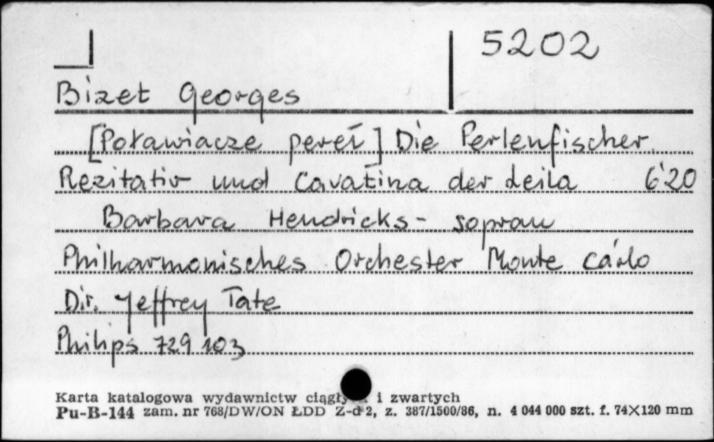 5202
Bizet Georges
[Poławiacze pereł] Die Perlenfischer
Rezitativ und Cavatina der Leila 6'20
Barbara Hendricks - sopran
Philharmonisches Orchester Monte Carlo
Dir. Jeffrey Tate
Philips 729 103
Karta katalogowa wydawnictw i zwartych
Pu-B-144 zam. nr 768/DW/ON ŁDD Z-d 2, z. 387/1500/86, n. 4 044 000 szt. f. 74X120 mm